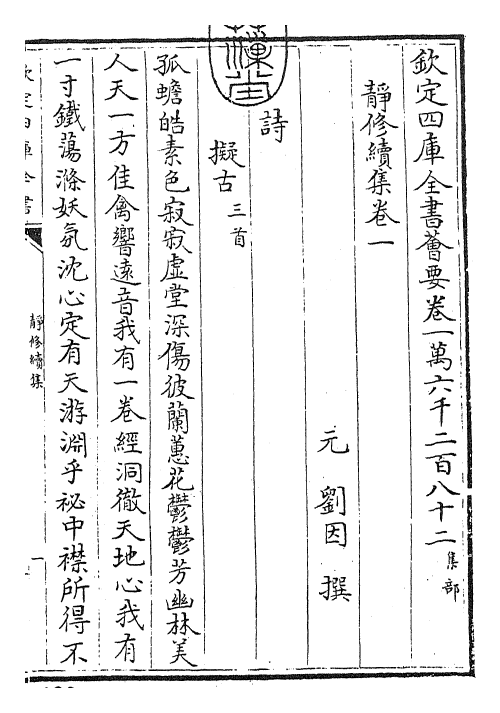 欽定四庫全書薈要卷一萬六千二百八十二集部
靜修續集卷一
元 劉因 撰
詩
擬古三首
孤蟾皓素色寂寂虛堂深傷彼蘭蕙花鬱鬱芳幽林美
人天一方佳禽響遠音我有一卷經洞徹天地心我有
一寸鐵蕩滌妖氛沈心定有天游淵乎祕中襟所得不
欽定四庫全書
靜修續集
一